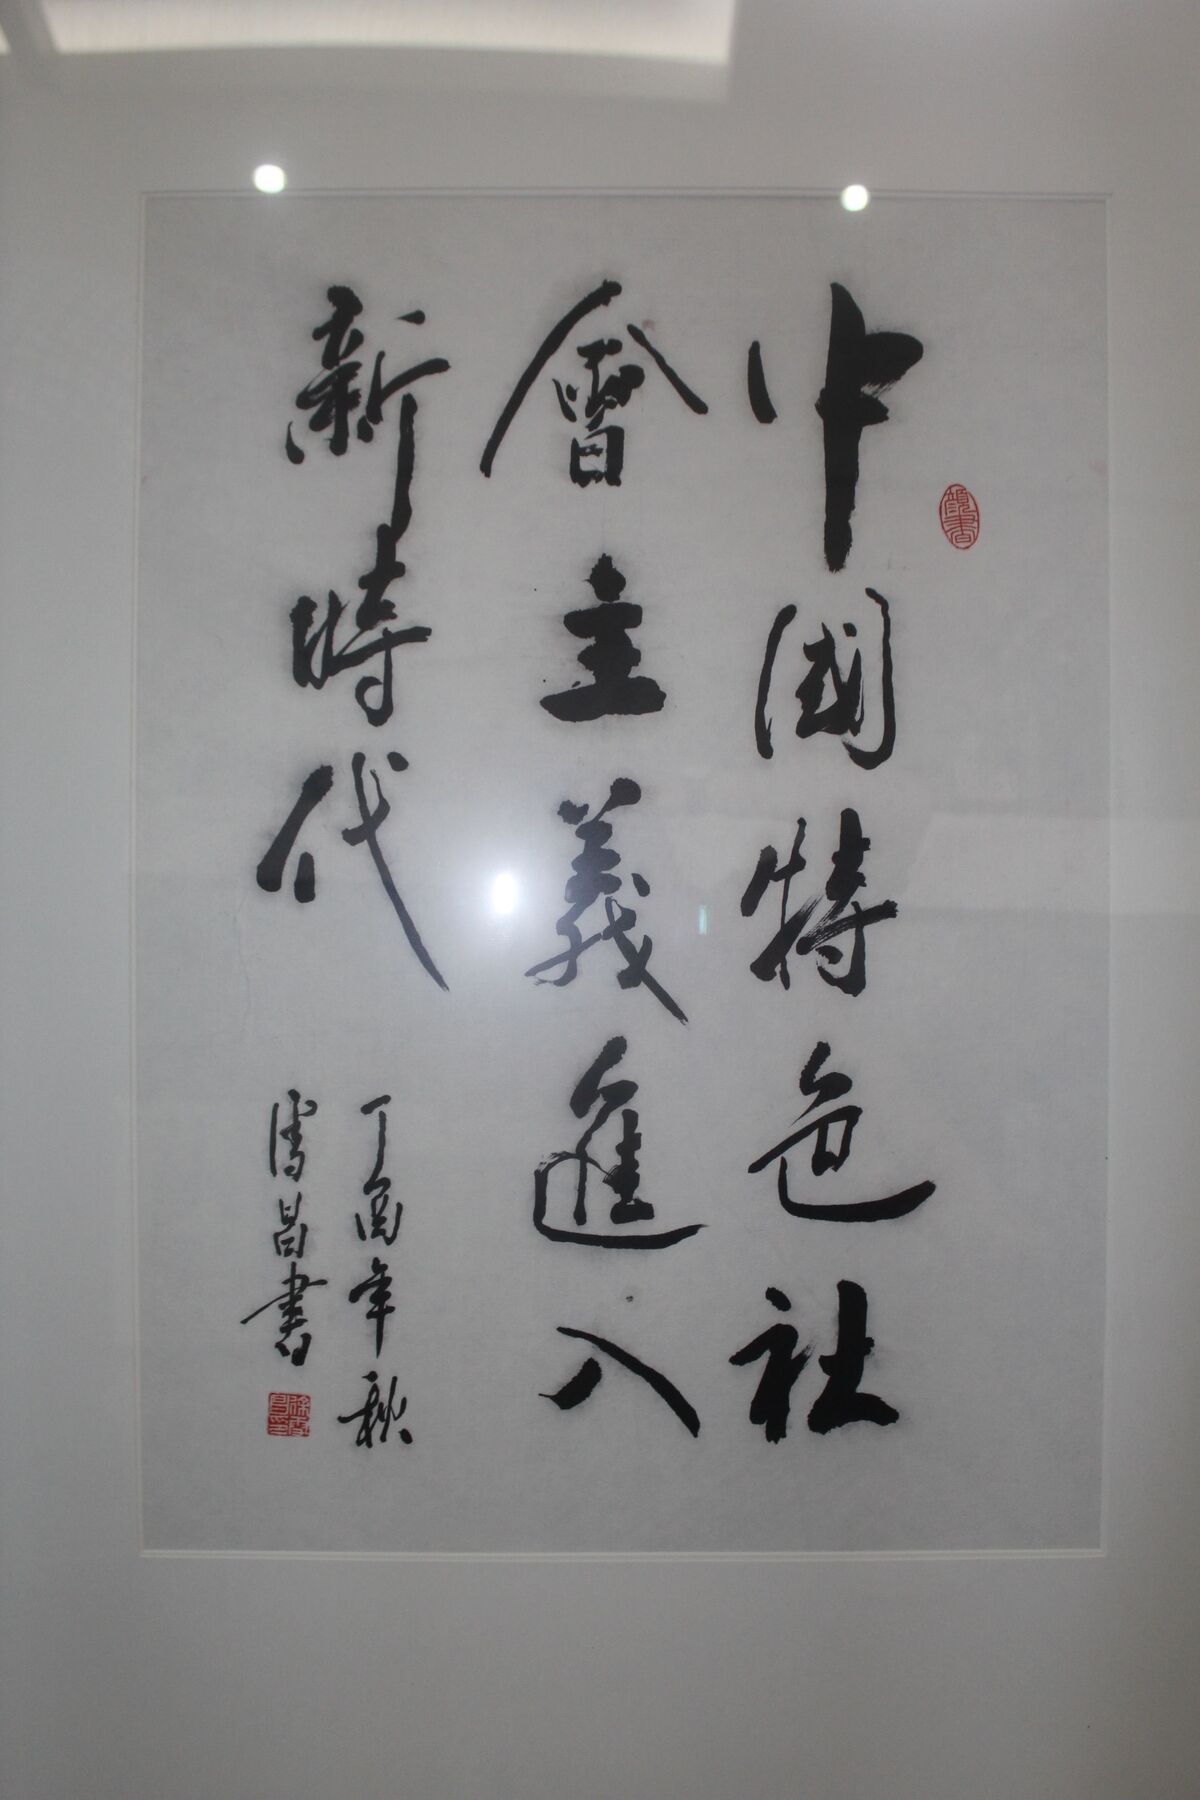 中國特色社
會主義進入
新時代
丁酉年秋
昌書